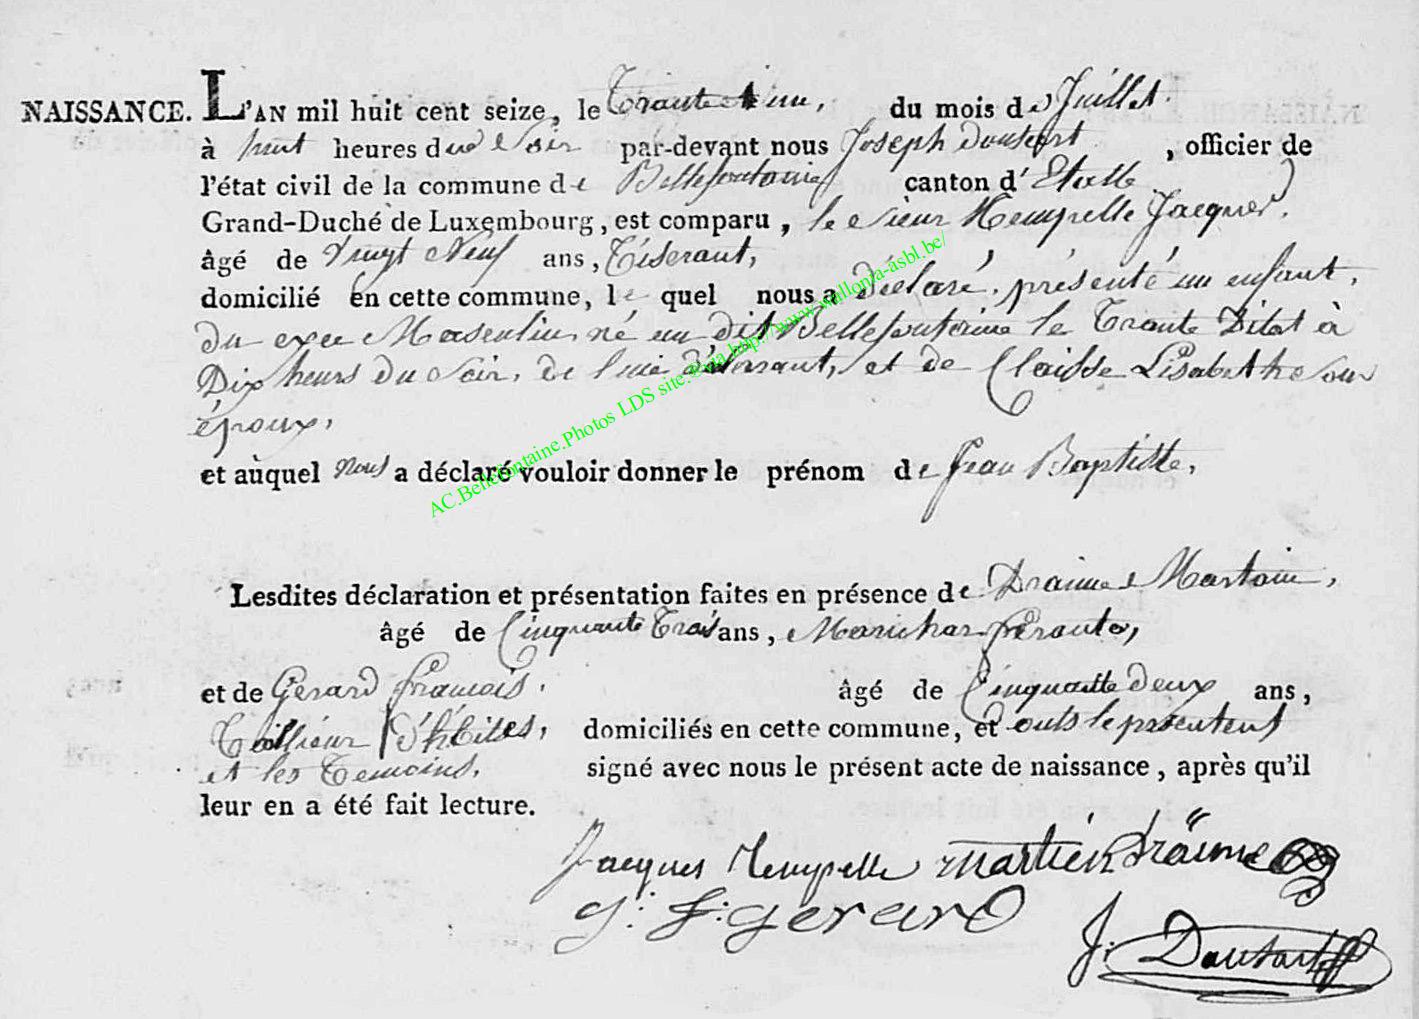 NAISSANCE. L'AN mil huit cent seize, le Trante et un, du mois de Juillet.
à huit heures du Soir par-devant nous Joseph Dausort, officier de
l'état civil de la commune de Bellefontaine canton d' Etalle
Grand-Duché de Luxembourg, est comparu, le Sieur Hempelle Jacques,
âgé de Vingt Neuf ans, Tiserant,
domicilié en cette commune, le quel nous a Déclaré, présenté un enfant,
du exee Masculin, né au dit Bellefontaine le Trante Dilot à
Dix heurs du Soir, de luie déclarant, et de Claisse Lisabethe son
époux,
et auquel nous a déclaré vouloir donner le prénom de Jean Baptiste,
Lesdites déclaration et présentation faites en présence de Draime Martain,
âgé de Cinquante Trois ans, Marichar férante,
et de Gerard francois, âgé de Cinquantte deux ans,
Taillieur D'hbites, domiciliés en cette commune, et onts le présentent
et les Temoins, signé avec nous le présent acte de naissance, après qu'il
leur en a été fait lecture.
Jacques Hempelle martien Dräime
g: f: gerard
J: Dautart
AC.Bellefontaine.Photos LDS site:©sia http://www.wallonia-asbl.be/